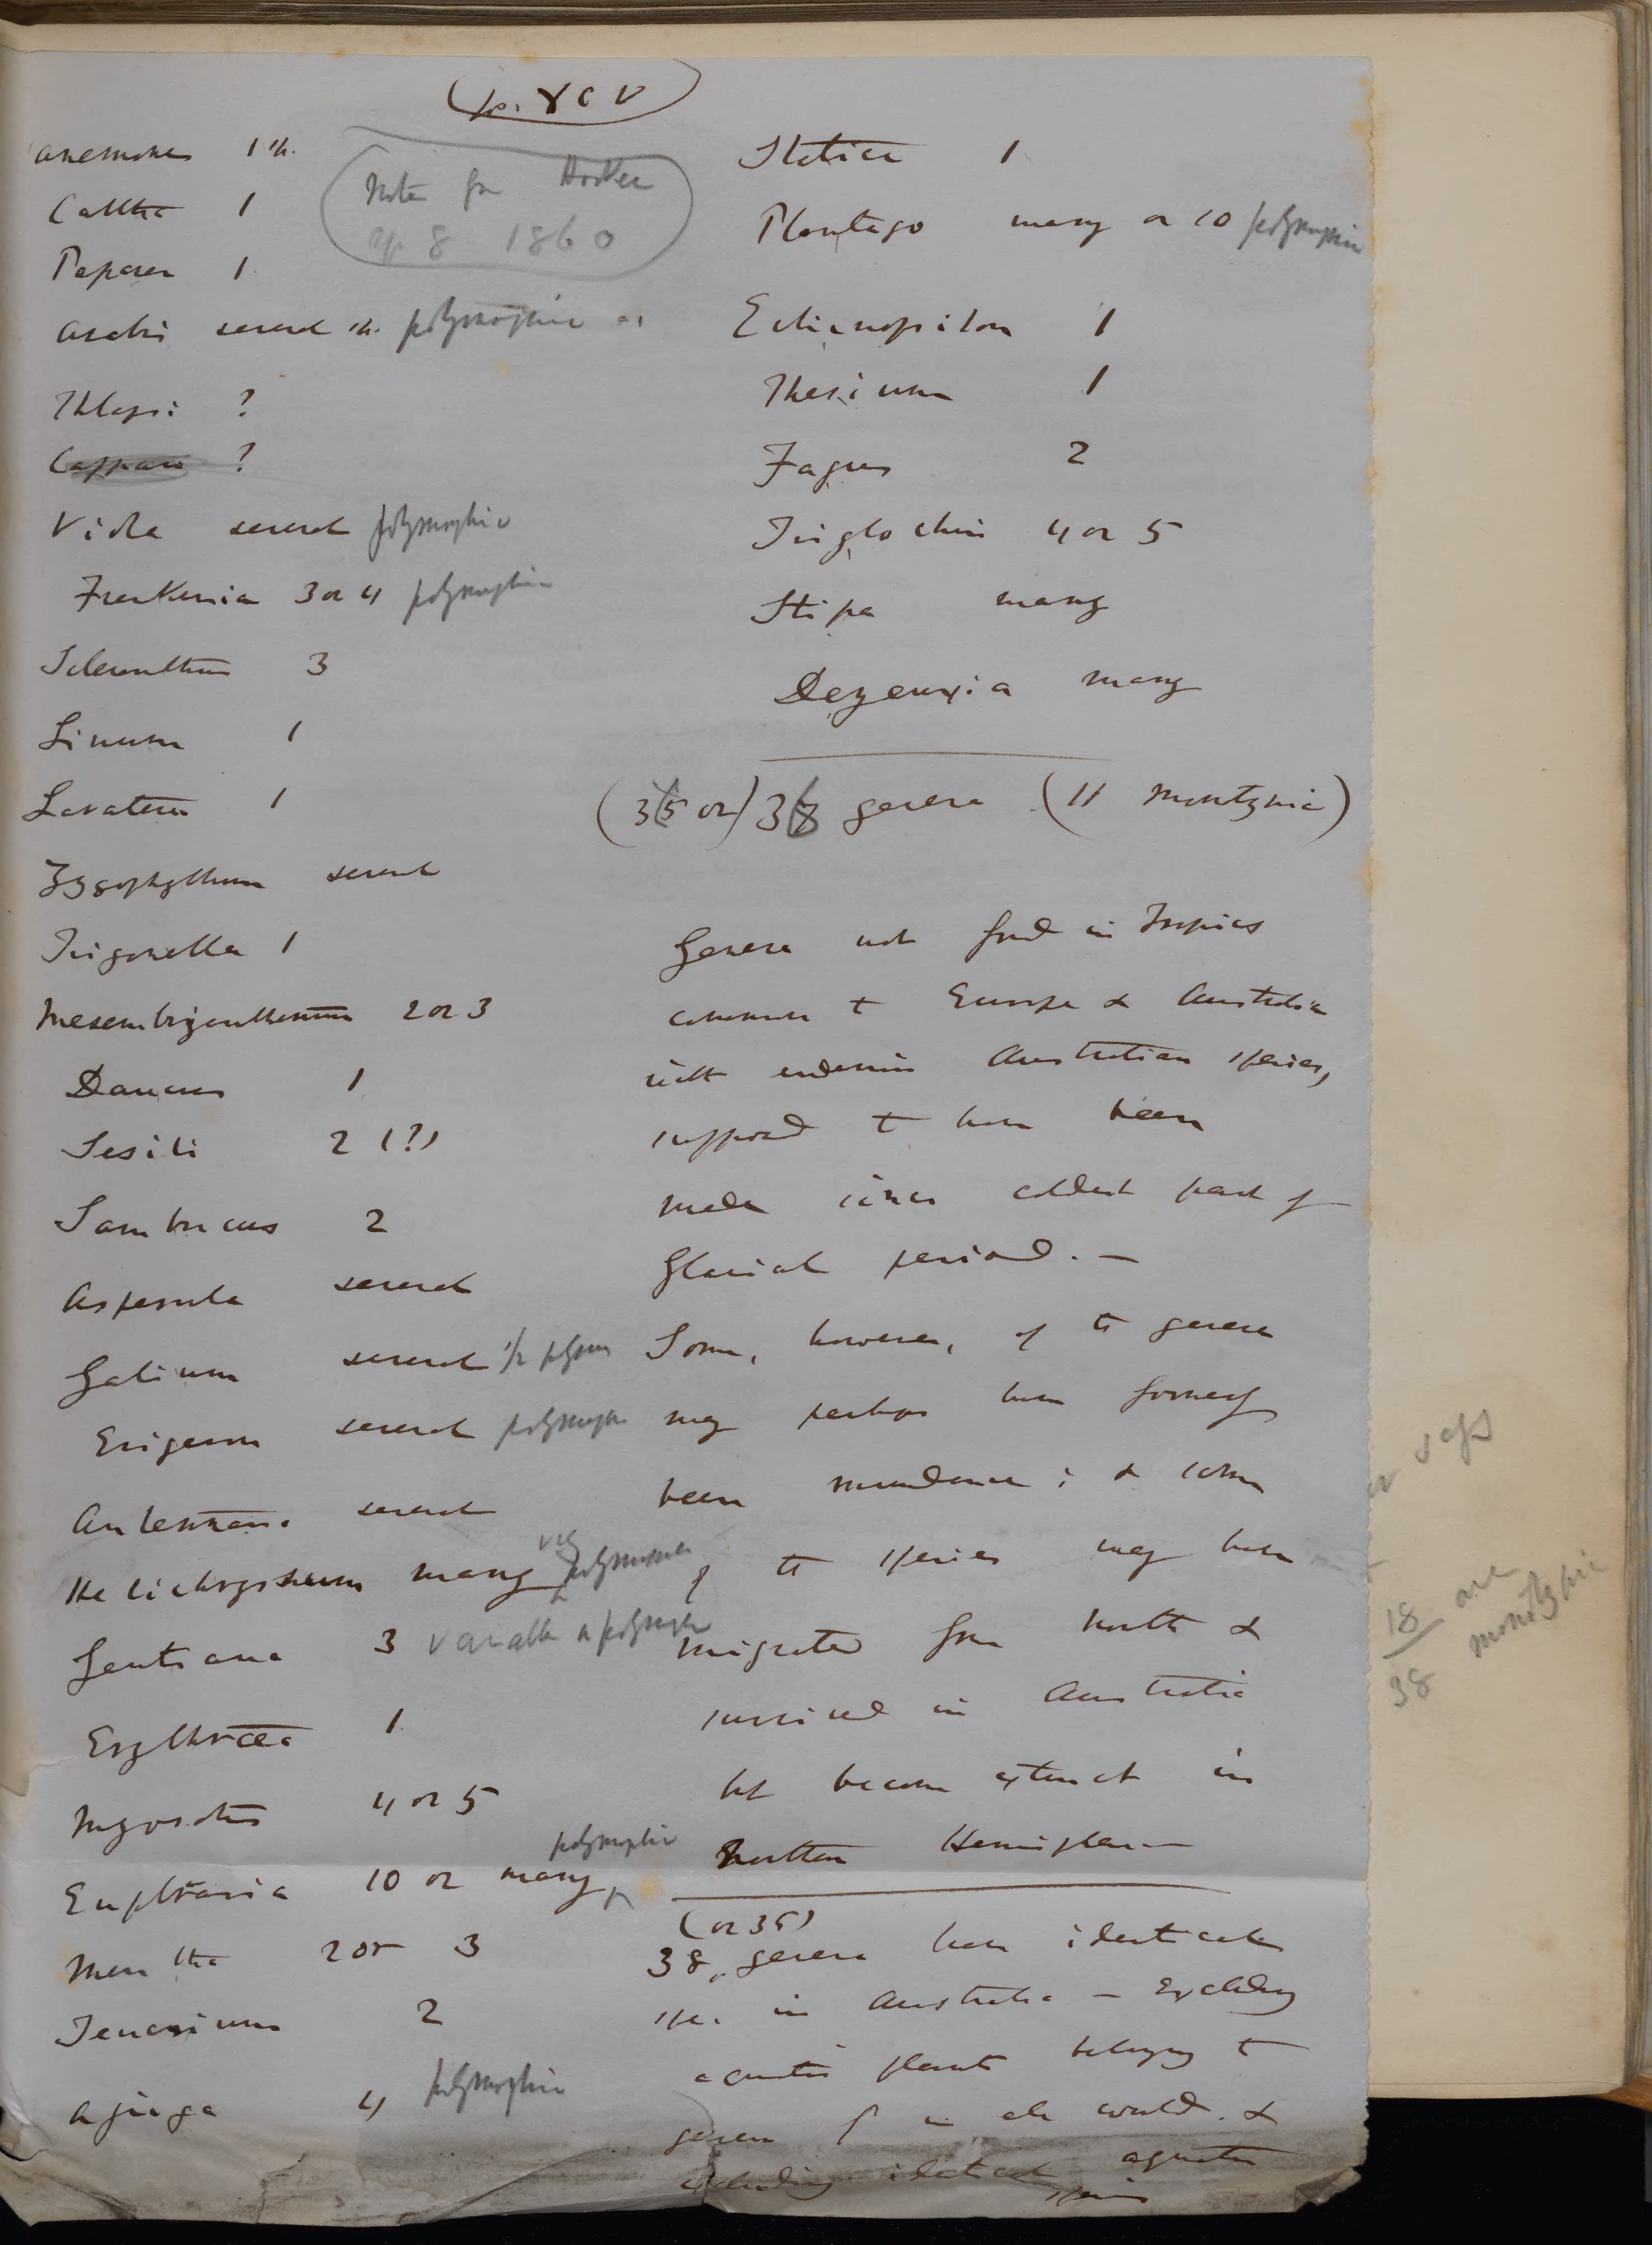 (p. XCV)
Anemone 1 sp.
Caltha 1
Papaver 1
Arabis several sp. polymorphic
Thlaspi ?
Cappara ?
Viola several polymorphic
Frankenia 3 or 4 polymorphic
Scleranthus 3
Linum 1
Lavatera 1
Zygophyllum several
Trigonella 1
Mesembryanthemum 2 or 3
Daucus 1
Seseli 2 (?)
Sambucus 2
Asperula several
Galium several
Erigeron several polymorphic
Antennaria several
Helichrysum many very polymorphic
Gentiana 3 variable or polymorphic
Erythræa 1
Myosotis 4 or 5
Euphrasia 10 or many polymorphic
Mentha 2 or 3
Teucrium 2
Ajuga 4 polymorphic
Note for Hooker
Ap 8 1860
Statice 1
Plantago many or 10 polymorphic
Echinopsilon 1
Thesium 1
Fagus 2
Triglochin 4 or 5
Stipa many
Deyeuxia many
(35 or) 38 genera (11 monotypic)
Genera not found in Tropics
common to Europe & Australia
with endemic Australian species,
supposed to have been
made since coldest part of
Glacial period. —
Some, however, of the genera
may perhaps have formerly
been mundane; & some
of the species may have
migrated from north &
survived in Australia
but become extinct in
Northern Hemisphere
(or 35)
38 genera have identical
spe. in Australia — Excluding
aquatic plants belonging to
genera in all world. &
excluding identical aquatic
species
18 are
38 monotypic